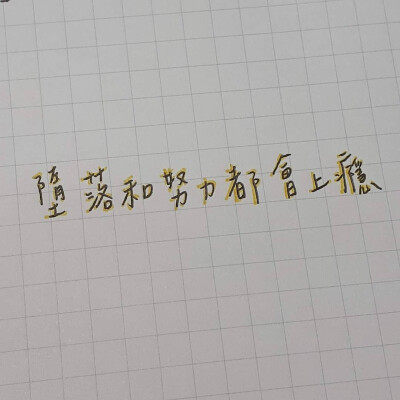 墮落和努力都會上癮